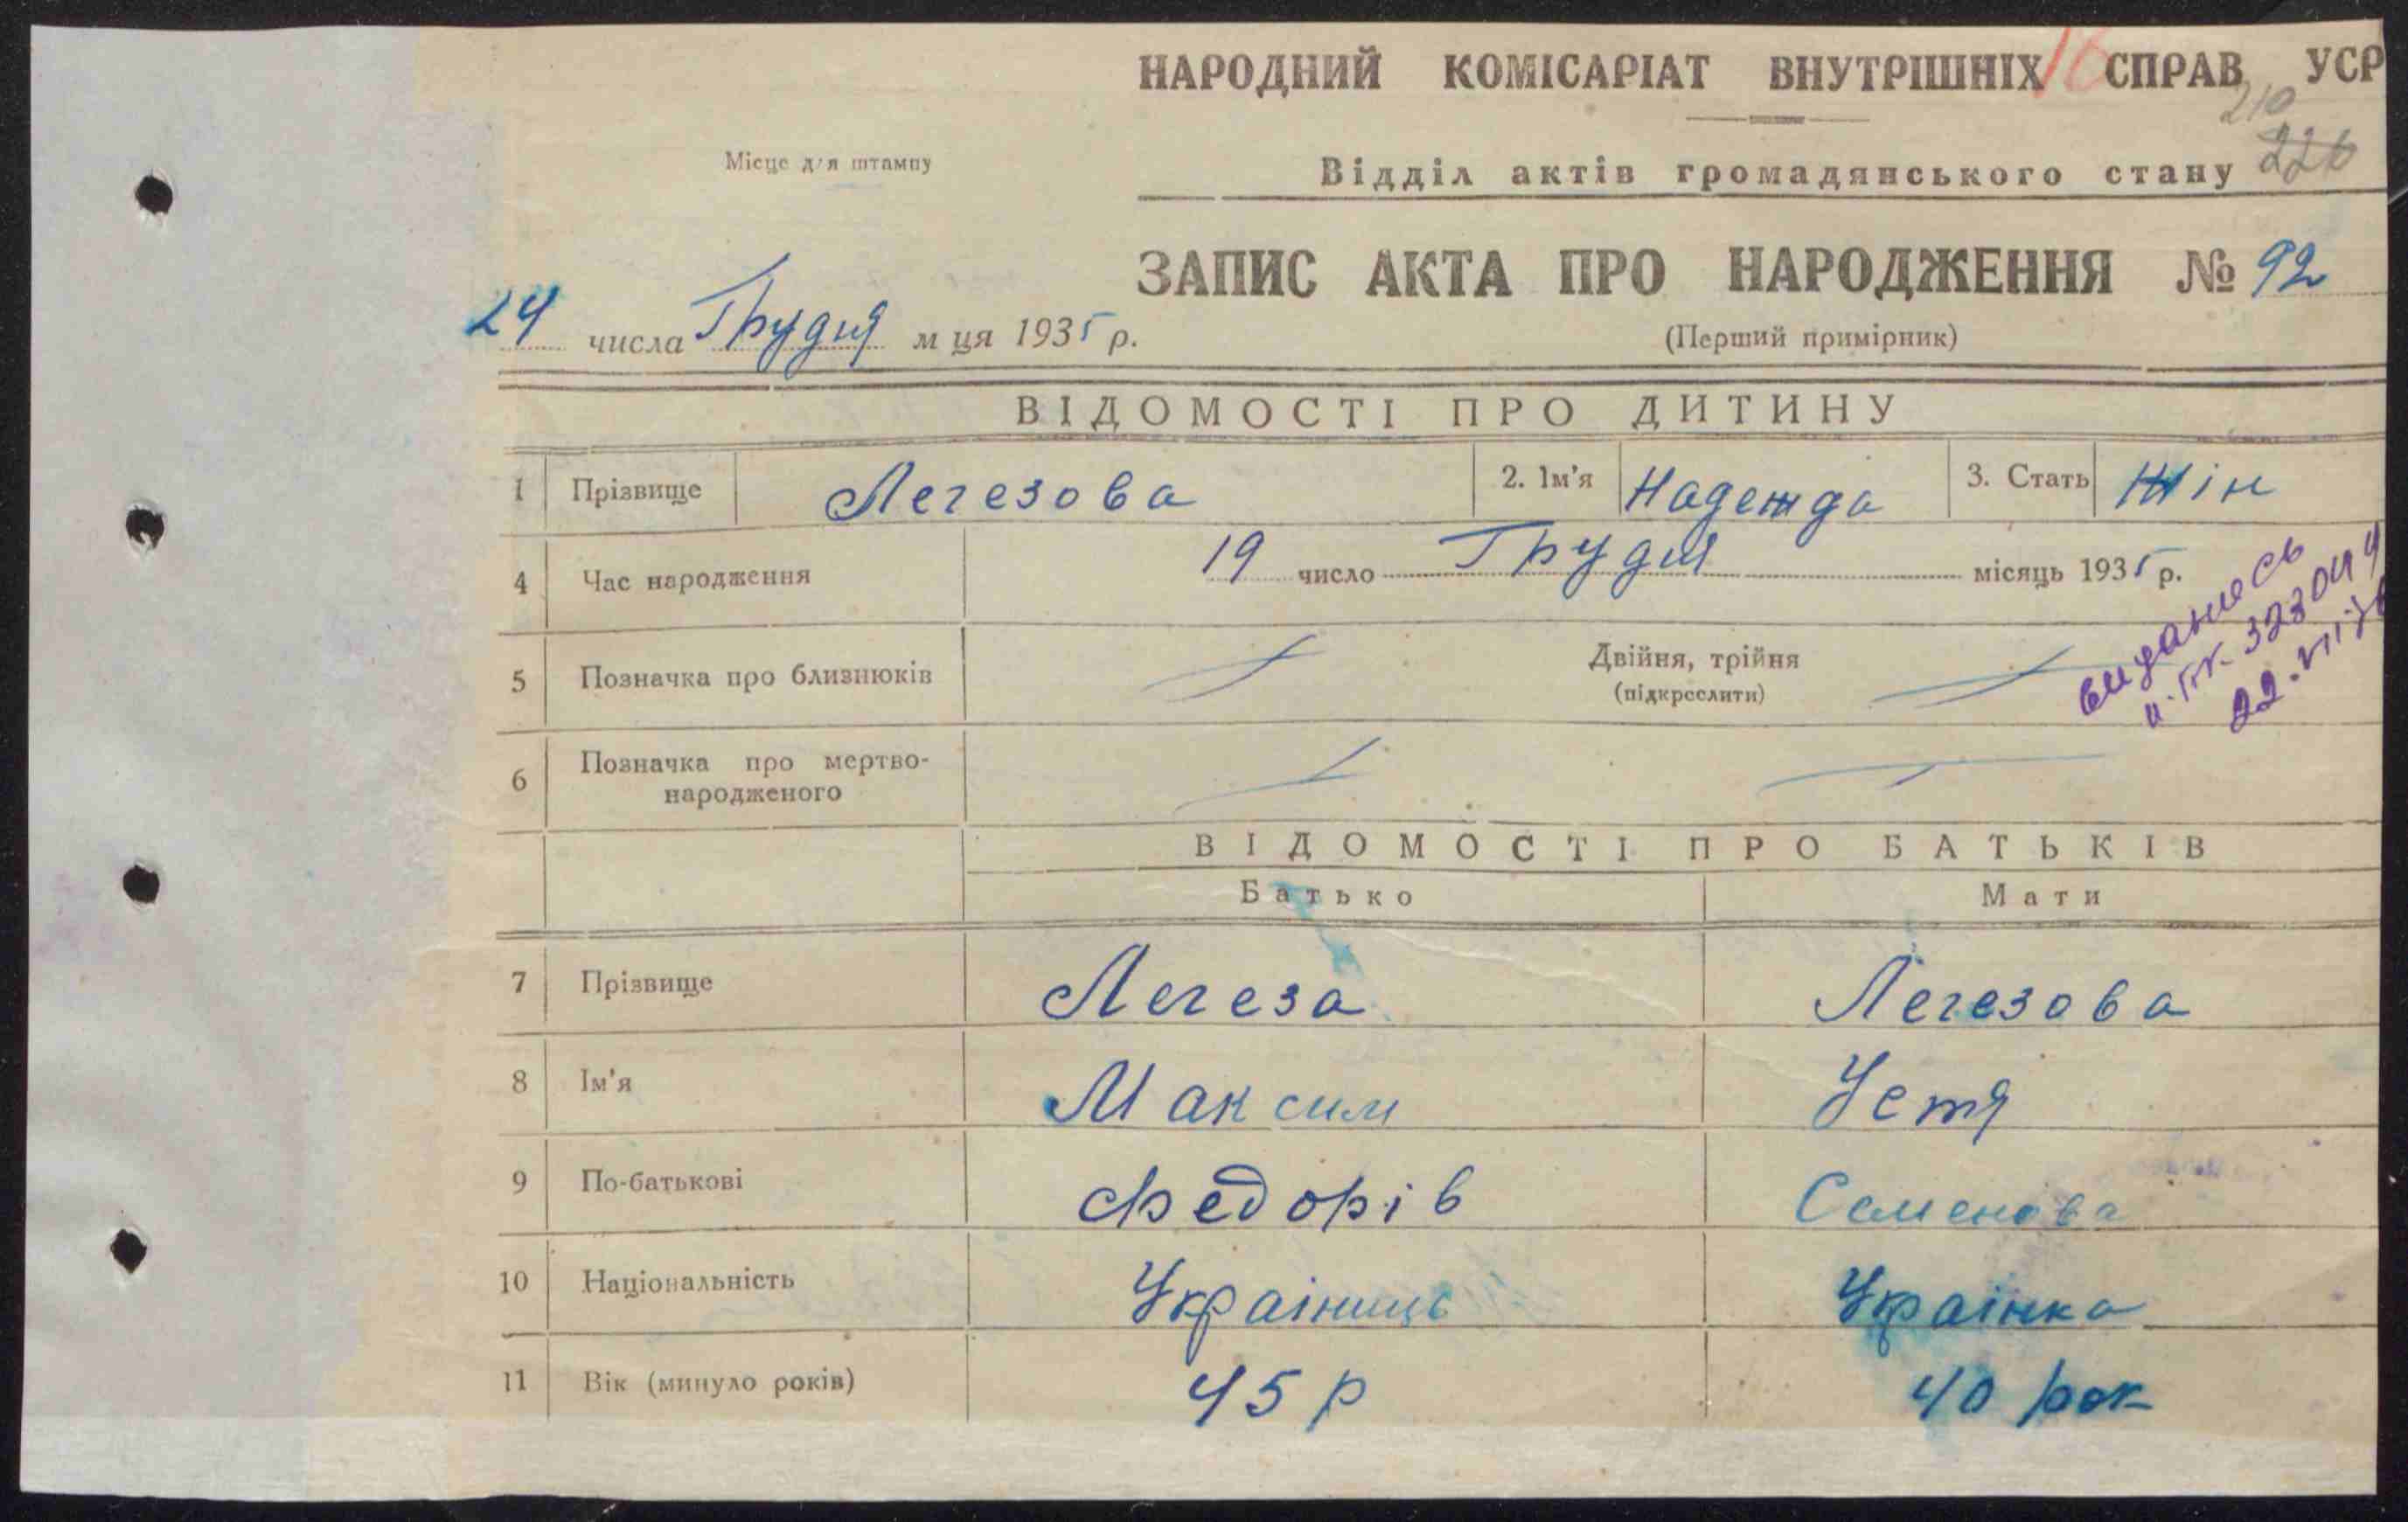 НАРОДНИЙ КОМІСАРІАТ ВНУТРІШНІХ СПРАВ УСР
16
210
226
Місце для штампу
Відділ актів громадянського стану
ЗАПИС АКТА ПРО НАРОДЖЕННЯ № 92
24 числа Грудня м ця 1935 р.
(Перший примірник)
ВІДОМОСТІ ПРО ДИТИНУ
1 Прізвище Легезова 2. Ім'я Надежда 3. Стать Жін
4 Час народження 19 число Грудня місяць 1935 р.
5 Позначка про близнюків Двійня, трійня
(підкреслити)
6 Позначка про мертво-
народженого
22.VII
ВІДОМОСТІ ПРО БАТЬКІВ
Батько Мати
7 Прізвище Легеза Легезова
8 Ім'я Максим Устя
9 По-батькові Федорів Семенова
10 Національність Украінець Украінка
11 Вік (минуло років) 45 р 40 рок